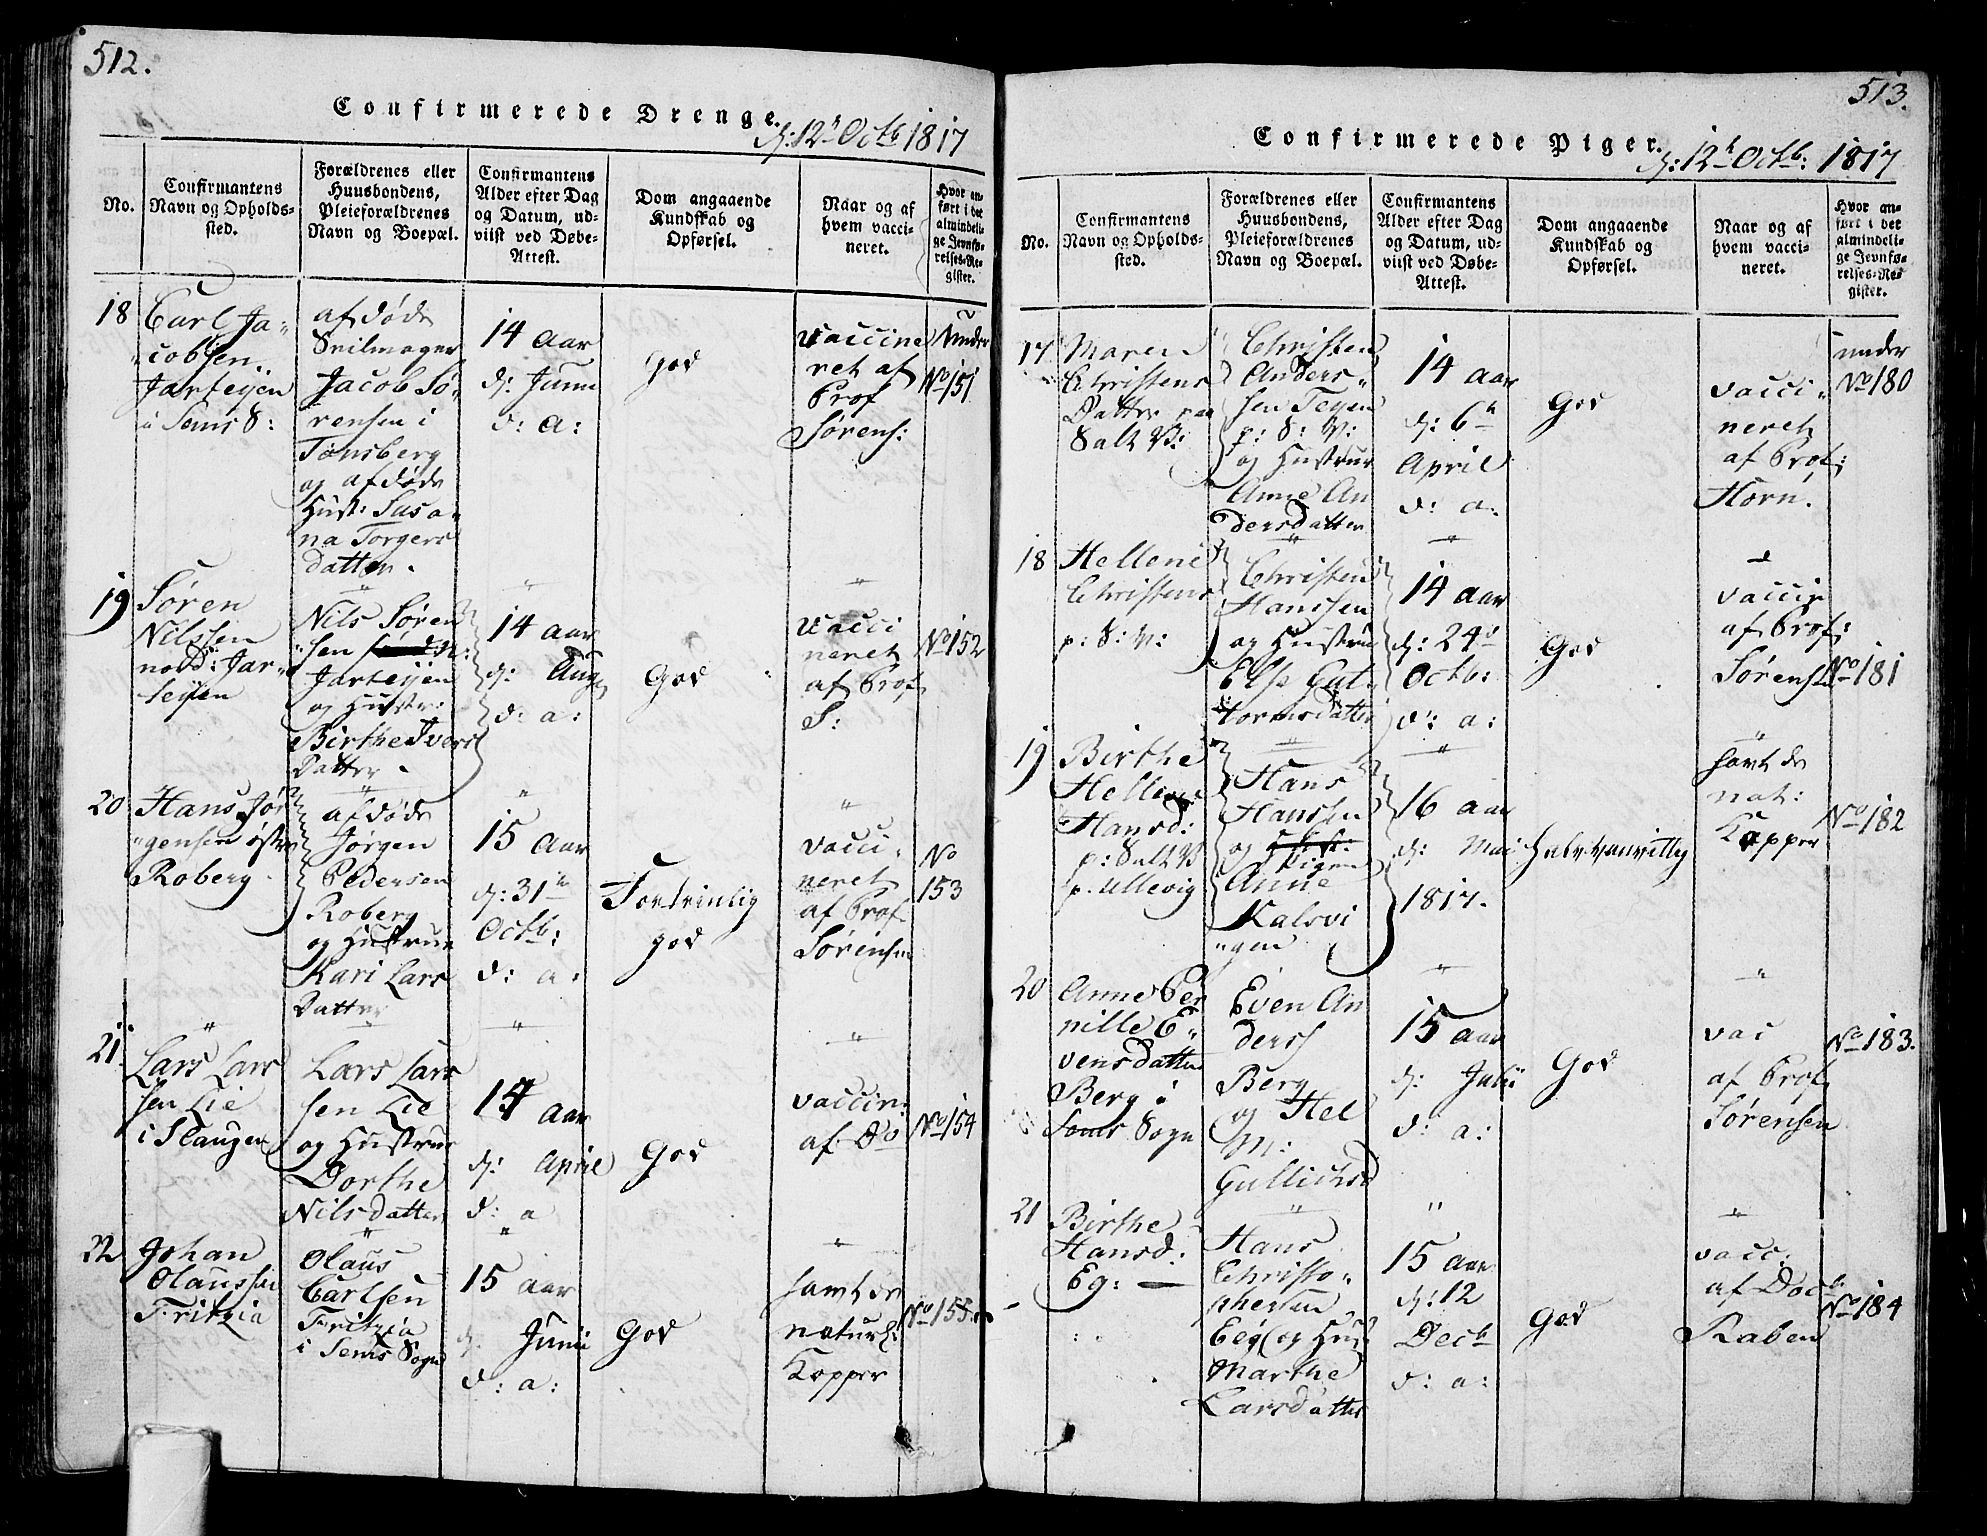 512.
Confirmerede Drenge.
d: 12te Octb 1817
No.
Confirmantens
Navn og Opholds-
sted.
Forældrenes eller
Huusbondens,
Pleieforældrenes
Navn og Boepæl.
Confirmantens
Alder efter Dag
og Datum, ud-
viist ved Døbe-
Attest.
Dom angaaende
Kundskab og
Opførsel.
Naar og af
hvem vacci-
neret.
Hvor an-
ført i det
almindeli-
ge Jevnfø-
relses-Re-
gister.
18
Carl Ja-
cobsen
Jarseyen
i Sems S:
afdøde
Seilmager
Jacob Sø-
rensen i
Tønsberg
og afdøde
Hust: Susa-
na Torgers
datter.
14 aar
d: Junii
d: a:
God
Vaccine
ret af
Prof
Sørens:
Under
No 151
19
Søren
Nilssen
nord: Jar-
seyen
Nils Søren
sen
Jarseyen
og Hustr:
Birthe Ivers
Datter.
14 aar
d: Aug
d: a:
God
Vacci
neret
af Prof
S:
No 152
20
Hans Jør
gensen østre
Roberg
afdøde
Jørgen
Pedersen
Roberg
og Hustrue
Kari Lars
Datter
15 aar
d: 31te
Octb:
d: a:
Fortrinlig
god
vacci-
neret
af Prof
Sørensen
No
153
21
Lars Lars
sen Lie
i Slaugen
Lars Lars
sen Lie
og Hustrue
Dorthe
Nilsdatter
14 aar
d: April
d: a
God
vaccin:
af Do
No 154
22
Johan
Olaussen
Fritzia
Olaus
Carlsen
Fritzia
i Sems Sogn
15 aar
d: Junii
d: a:
God
havt de
naturl:
Kopper
No 155
513.
Confirmerede Piger.
d: 12te Octb: 1817
No.
Confirmantens
Navn og Opholds-
sted.
Forældrenes eller
Huusbondens,
Pleieforældrenes
Navn og Boepæl.
Confirmantens
Alder efter Dag
og Datum, ud-
viist ved Døbe-
Attest.
Dom angaaende
Kundskab og
Opførsel.
Naar og af
hvem vacci-
neret.
Hvor an-
ført i det
almindeli-
ge Jevnfø-
relses-Re-
gister.
17
Maren
Christens
Datter paa
Salt V:
Christen
Anders-
sen Teyen
p: S: V:
og Hustrue
Anne An
dersdatter
14 aar
d: 6te
April
d: a:
God
vacci-
neret
af Prof:
Horn.
under
No 180
18
Hellene
Christens
p: S: V:
Christen
Hanssen
og Hustrue
Else Gut
tormsdatter
14 aar
d: 24de
Octb:
d: a:
God
vaccin
af Prof:
Sørensen
No 181
19
Birthe
Hellene
Hansd:
p: Salt V
p: Ullevig
Hans
Hanssen
og Hust:
Pigen
Anne
Kalsvi
gen
16 aar
d: Mai
1817.
Halv vanvittig
havt de
nat:
Kopper
No 182
20
Anne Per
nille E-
vensdatter
Berg i
Sems Sogn
Even An
derss
Berg
og Hel
M:
Gullichsd
15 aar
d: Julii
d: a:
God
vac
af Prof
Sørensen
No 183.
21
Birthe
Hansd:
Eg:
Hans
Christo-
phersen
Eeg og Hus
Marthe
Larsdatter
15 aar
d: 12
Decb
d: a:
God
vacc:
af Doct:
Raben
No 184